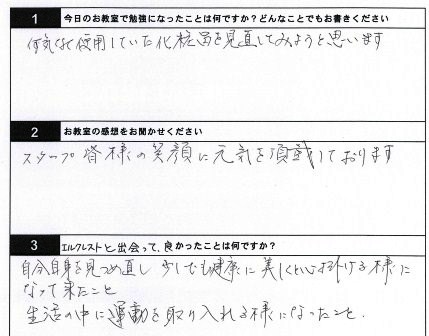 1 今日のお教室で勉強になったことは何ですか？どんなことでもお書きください
何気なく使用していた化粧品を見直してみようと思います
2 お教室の感想をお聞かせください
スタッフ皆様の笑顔に元気を頂戴しております
3 エルクレストと出会って、良かったことは何ですか？
自分自身を見つめ直し 少しでも健康に美しくと心掛ける様に
なって来たこと
生活の中に運動を取り入れる様になったこと.